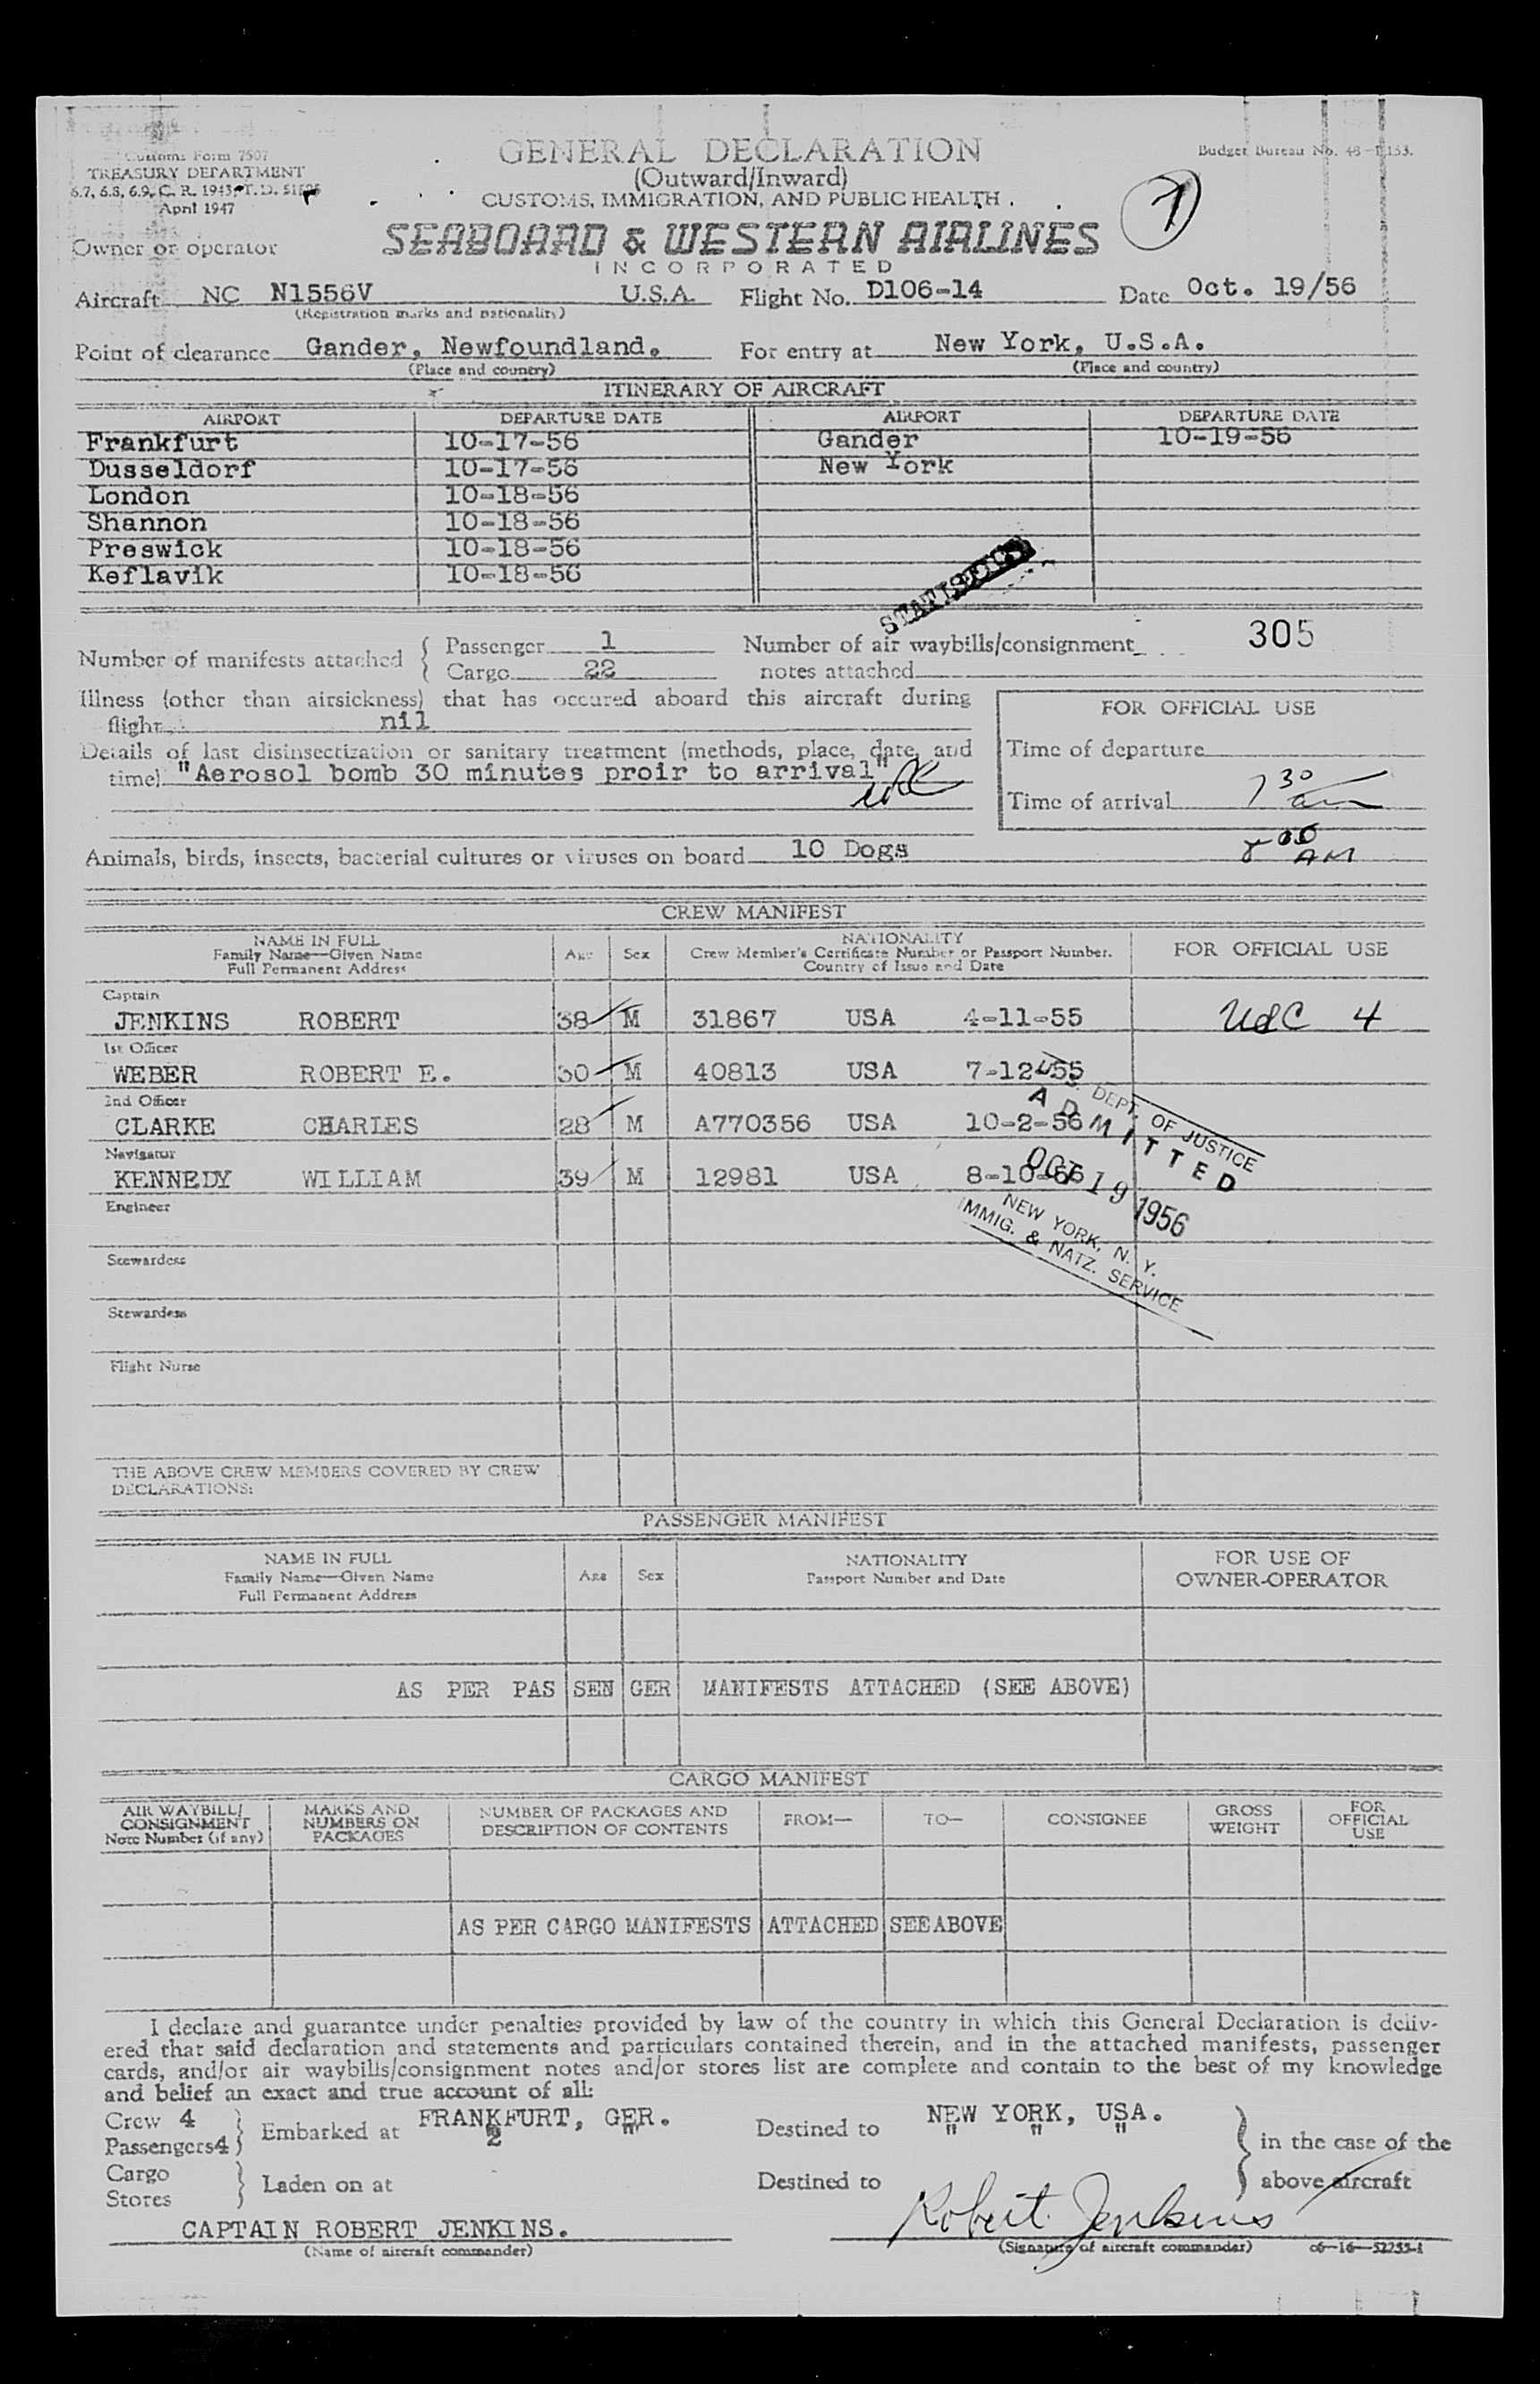 Customs Form 7507
TREASURY DEPARTMENT
6.7, 6.8, 6.9, C. R. 1943 T. D.
April 1947
GENERAL DECLARATION
(Outward/Inward)
CUSTOMS, IMMIGRATION, AND PUBLIC HEALTH
Budget Bureau No.
7
Owner or operator
SEABOARD & WESTERN AIRLINES
INCORPORATED
Aircraft NC N1556V U.S.A. Flight No. D106-14 Date Oct. 19/56
(Registration marks and nationality)
Point of clearance Gander, Newfoundland. For entry at New York, U.S.A.
(Place and country) (Place and country)
ITINERARY OF AIRCRAFT
AIRPORT DEPARTURE DATE AIRPORT DEPARTURE DATE
Frankfurt 10-17-56 Gander 10-19-56
Dusseldorf 10-17-56 New York
London 10-18-56
Shannon 10-18-56
Preswick 10-18-56
Keflavik 10-18-56
STATISTICS
Number of manifests attached { Passenger 1 Number of air waybills/consignment 305
Cargo 22 notes attached
Illness (other than airsickness) that has occured aboard this aircraft during
flight nil
FOR OFFICIAL USE
Details of last disinsectization or sanitary treatment (methods, place, date, and
time) "Aerosol bomb 30 minutes proir to arrival"
Time of departure
Time of arrival 7 30 am
8 00 AM
Animals, birds, insects, bacterial cultures or viruses on board 10 Dogs
CREW MANIFEST
NAME IN FULL
Family Name—Given Name
Full Permanent Address
Age
Sex
NATIONALITY
Crew Member's Certificate Number or Passport Number.
Country of Issue and Date
FOR OFFICIAL USE
Captain
JENKINS ROBERT 38 M 31867 USA 4-11-55 USC 4
1st Officer
WEBER ROBERT E. 30 M 40813 USA 7-12-55
2nd Officer
CLARKE CHARLES 28 M A770356 USA 10-2-56
Navigator
KENNEDY WILLIAM 39 M 12981 USA 8-10-56
U.S. DEPT. OF JUSTICE
ADMITTED
OCT 19 1956
NEW YORK, N. Y.
IMMIG. & NATZ. SERVICE
Engineer
Stewardess
Stewardess
Flight Nurse
THE ABOVE CREW MEMBERS COVERED BY CREW
DECLARATIONS:
PASSENGER MANIFEST
NAME IN FULL
Family Name—Given Name
Full Permanent Address
Age
Sex
NATIONALITY
Passport Number and Date
FOR USE OF
OWNER-OPERATOR
AS PER PAS SEN GER MANIFESTS ATTACHED (SEE ABOVE)
CARGO MANIFEST
AIR WAYBILL/
CONSIGNMENT
Note Number (if any)
MARKS AND
NUMBERS ON
PACKAGES
NUMBER OF PACKAGES AND
DESCRIPTION OF CONTENTS
FROM—
TO—
CONSIGNEE
GROSS
WEIGHT
FOR
OFFICIAL
USE
AS PER CARGO MANIFESTS ATTACHED SEE ABOVE
I declare and guarantee under penalties provided by law of the country in which this General Declaration is deliv-
ered that said declaration and statements and particulars contained therein, and in the attached manifests, passenger
cards, and/or air waybills/consignment notes and/or stores list are complete and contain to the best of my knowledge
and belief an exact and true account of all:
Crew 4 } Embarked at FRANKFURT, GER. Destined to NEW YORK, USA. } in the case of the
Passengers 4 2 " " " "
Cargo } Laden on at Destined to above aircraft
Stores
CAPTAIN ROBERT JENKINS. Robert Jenkins
(Name of aircraft commander) (Signature of aircraft commander) c6—16—52255-1